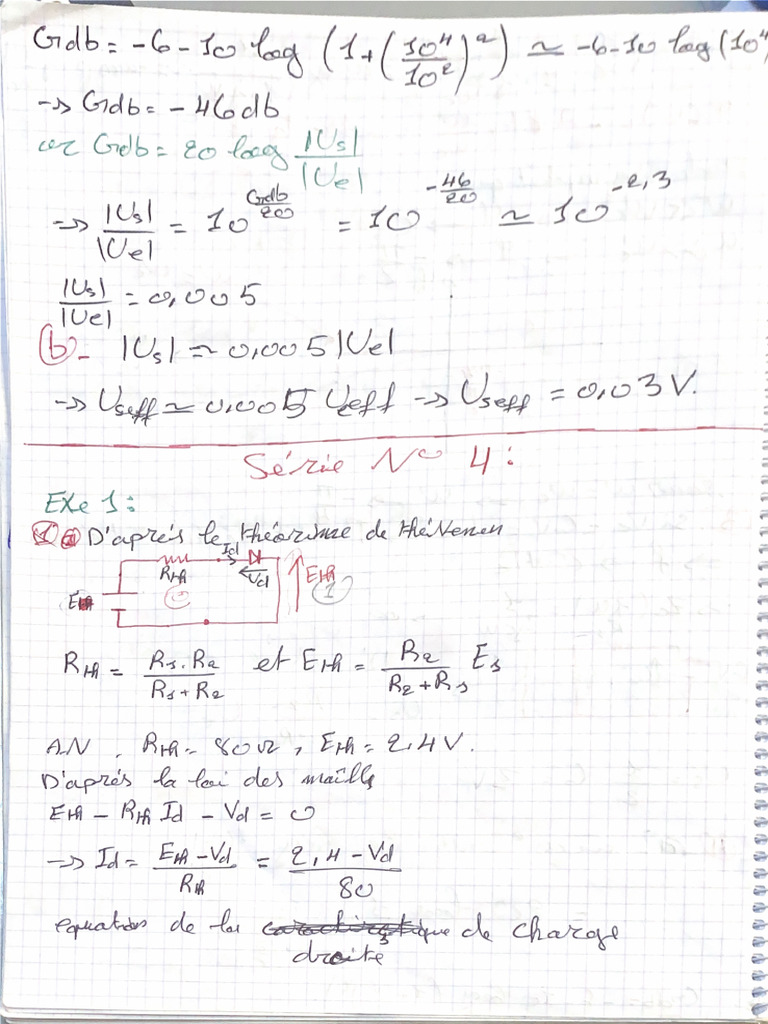 Gdb = -6 - 10 log (1 + (10⁴/10²)²) ≃ -6 - 10 log (10⁴
→ Gdb = -46 db
or Gdb = 20 log |Us|/|Ue|
→ |Us|/|Ue| = 10^(Gdb/20) = 10^(-46/20) ≃ 10^(-2,3)
|Us|/|Ue| = 0,005
(b)- |Us| ≃ 0,005 |Ue|
→ Useff ≃ 0,005 Ueff → Useff = 0,03 V.
Série N° 4 :
Exe 1 :
1 a D'après le théorème de thévenen
Id
RTH
Vd
ETH
1
E
RTH = R1.R2/(R1+R2) et ETH = R2/(R2+R1) E1
AN, RTH = 80 Ω, ETH = 2,4 V.
D'après la loi des mailles
ETH - RTH Id - Vd = 0
→ Id = (ETH - Vd)/RTH = (2,4 - Vd)/80
equation de la de charge
droite